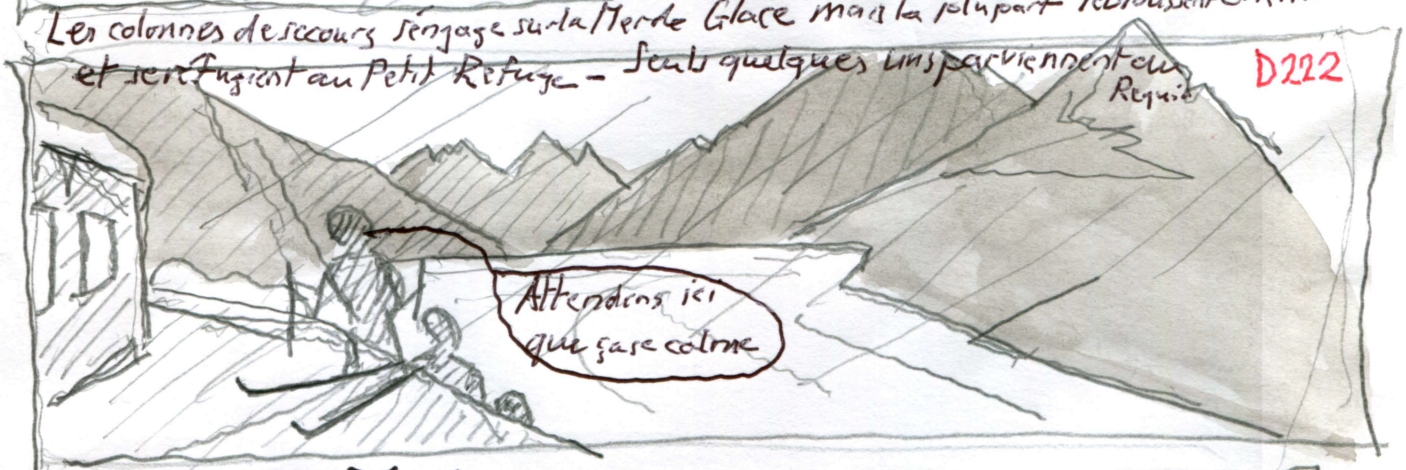 Les colonnes de secours s'engage sur la Mer de Glace mais la plupart rebroussent
et se réfugient au Petit Refuge - Seuls quelques uns parviennent au
Requin
D222
Attendons ici
que ça se calme